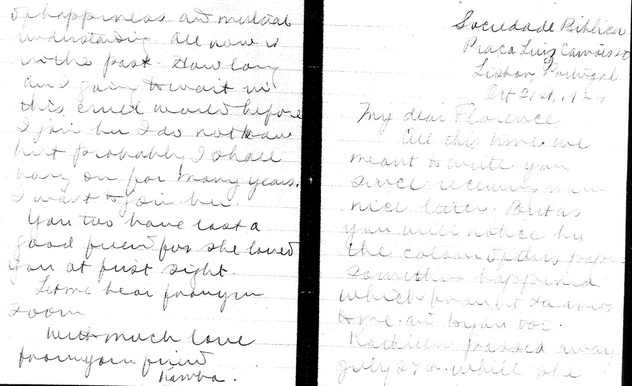 Sociedade Biblica
Praca Luiz Camões
Lisbon, Portugal
Oct 21st, 19
My dear Florence,
All this time we
meant to write you
since receiving your
nice letter. But as
you will notice by
the colour of this paper
something happened
which brought sadness
to me and to you too.
Kathleen passed away
July 27th while she
of happiness and mutual
understanding. All now is
in the past. How long
am I going to wait in
this cruel world before
I join her I do not know
but probably I shall
hang on for many years.
I want to join her.
You too have lost a
good friend for she loved
you at first sight.
Let me hear from you
soon
With much love
from your friend